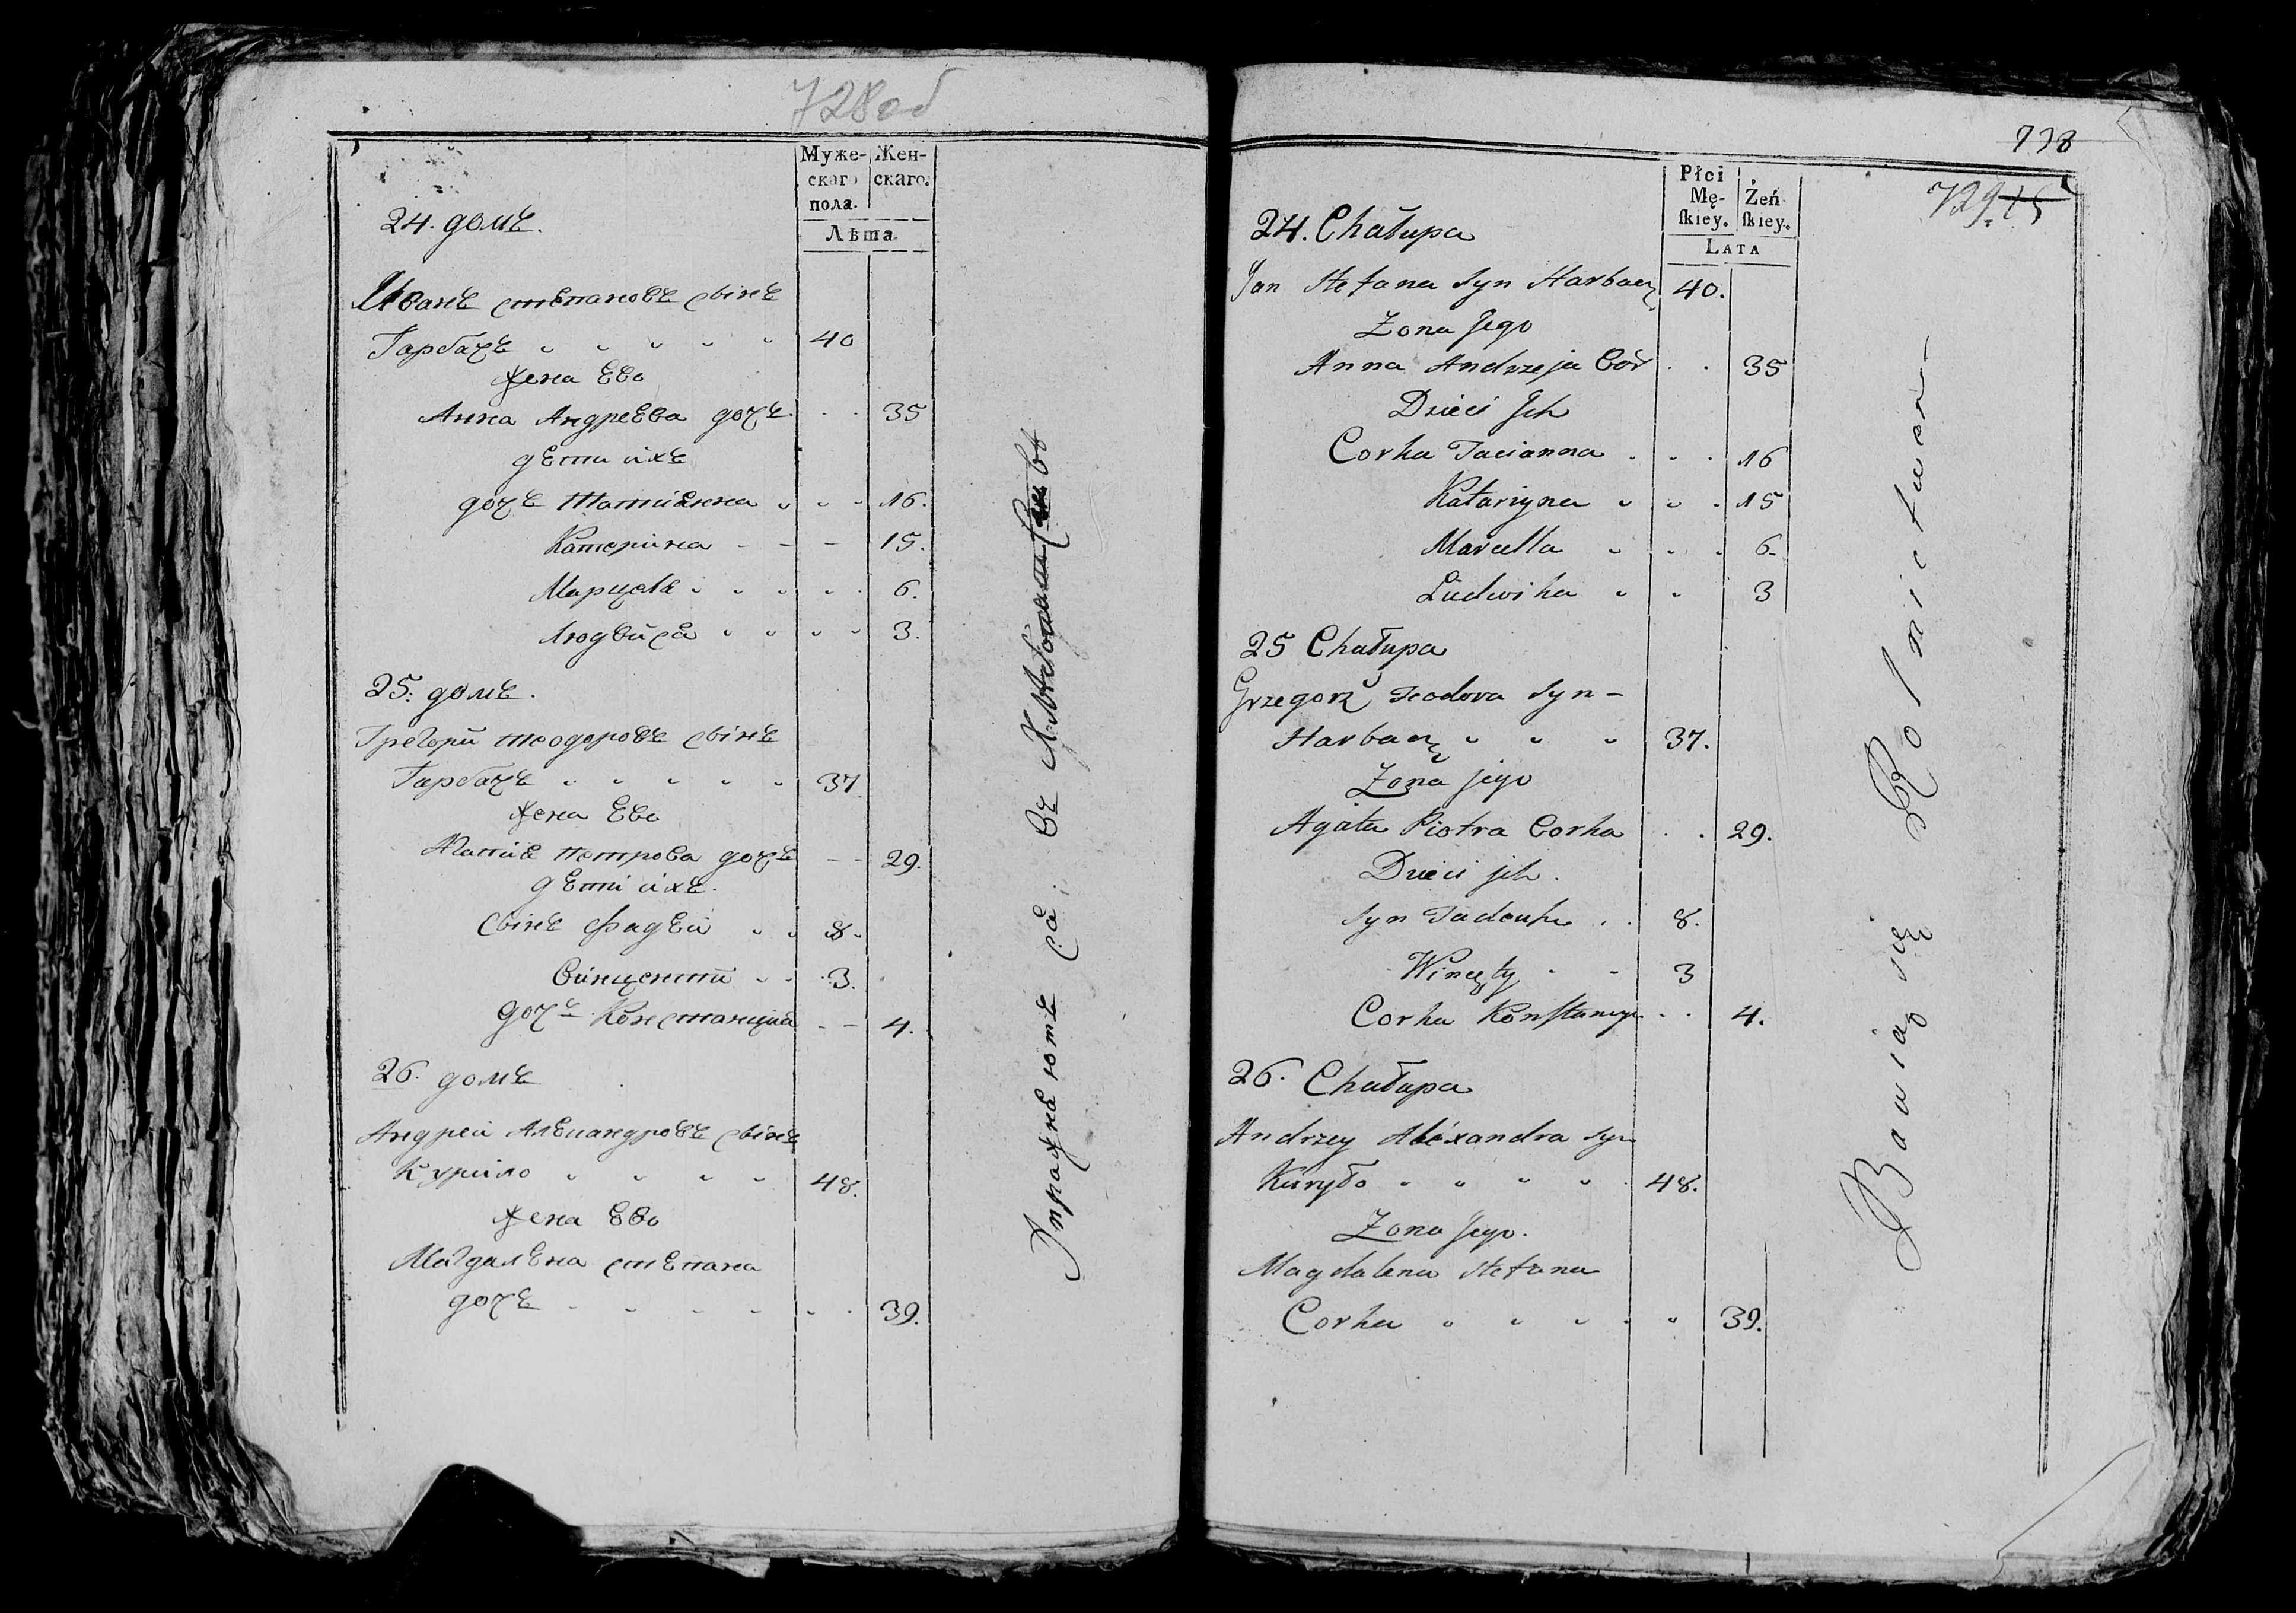 728 об
Муже-
скаго
пола.
Жен-
скаго.
Лѣта
24. домъ.
Иванъ степановъ сынъ
Гарбачъ " " " " " 40
жена Ево
Анна Андреева дочъ . . 35
дети ихъ
дочъ Татиянна " . . 16.
Катерина - - - 15.
Марцеля " " " " . 6.
Людвися " " " " 3.
25. домъ.
Грегори теодоровъ сынъ
Гарбачъ " " " " " 37
жена Ево
Петрова дочъ - - 29.
дети ихъ.
сынъ Фадей " " 8.
Винценти " . 3.
дочъ Констанция - - 4.
26. домъ
Андрей сынъ
Курило " " " " 48.
жена Ево
Магдалена степана
дочъ . . . . . . 39.
ся въ
738
729
15
Płci
Mę-
ſkiey.
Żeń
ſkiey.
LATA
24. Chałupa
Jan Stefana Syn Harbacz 40.
Zona Jego
Anna Andrzeja Cór . . 35
Dzieci Jch
Corka Tacianna . . . 16
Katarzyna " " . 15
Marcella " " . 6.
Ludwika " " 3
25 Chałupa
Grzegorz Teodora Syn -
Harbacz " " " 37.
Zona jego
Agata Piotra Corka . . 29.
Dzieci jch.
Syn Tadeusz . . 8.
Wincęty " - 3
Corka Konstancya . . 4.
26. Chałupa
Andrzey Alexandra Syn
Kuryło " " " " . 48.
Zona Jego.
Magdalena Stefana
Corka " " " . " 39.
Bawią się Rolnictwem -